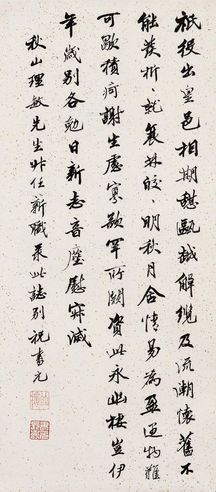 祇役出皇邑相期憩甌越解纜及流潮懷舊不
能發析〻就衰林皎〻明秋月含情易為盈遇物難
可歇積痾謝生慮寡欲罕所闕資此永幽棲豈伊
年歲別各勉日新志音塵慰寂蔑
秋山理敏先生升任新職录此誌別祝書元